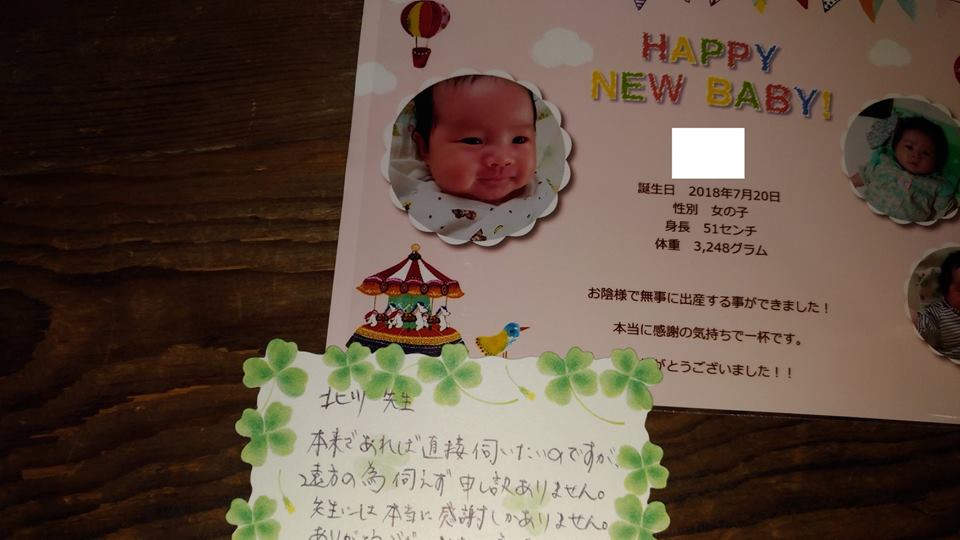 HAPPY
NEW BABY!
誕生日 2018年7月20日
性別 女の子
身長 51センチ
体重 3,248グラム
お陰様で無事に出産する事ができました!
本当に感謝の気持ちで一杯です。
がとうございました!!
北川 先生
本来であれば直接伺いたいのですが、
遠方の為伺えず申し訳ありません。
先生には本当に感謝しかありません。